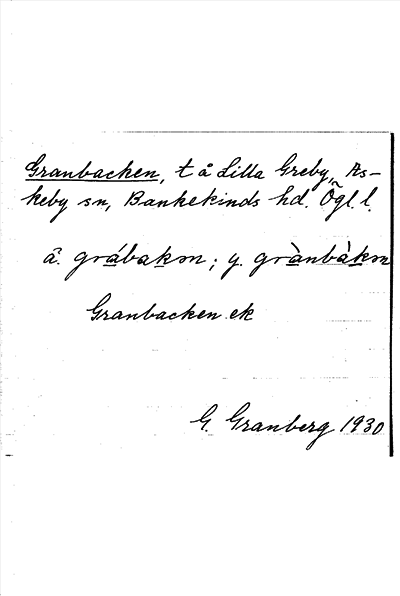 Granbacken, t å Lilla Greby, As-
keby sn, Bankekinds hd. Ögl. l.
ä. grábakən; y. grànbàkən
Granbacken ek
G. Granberg 1930